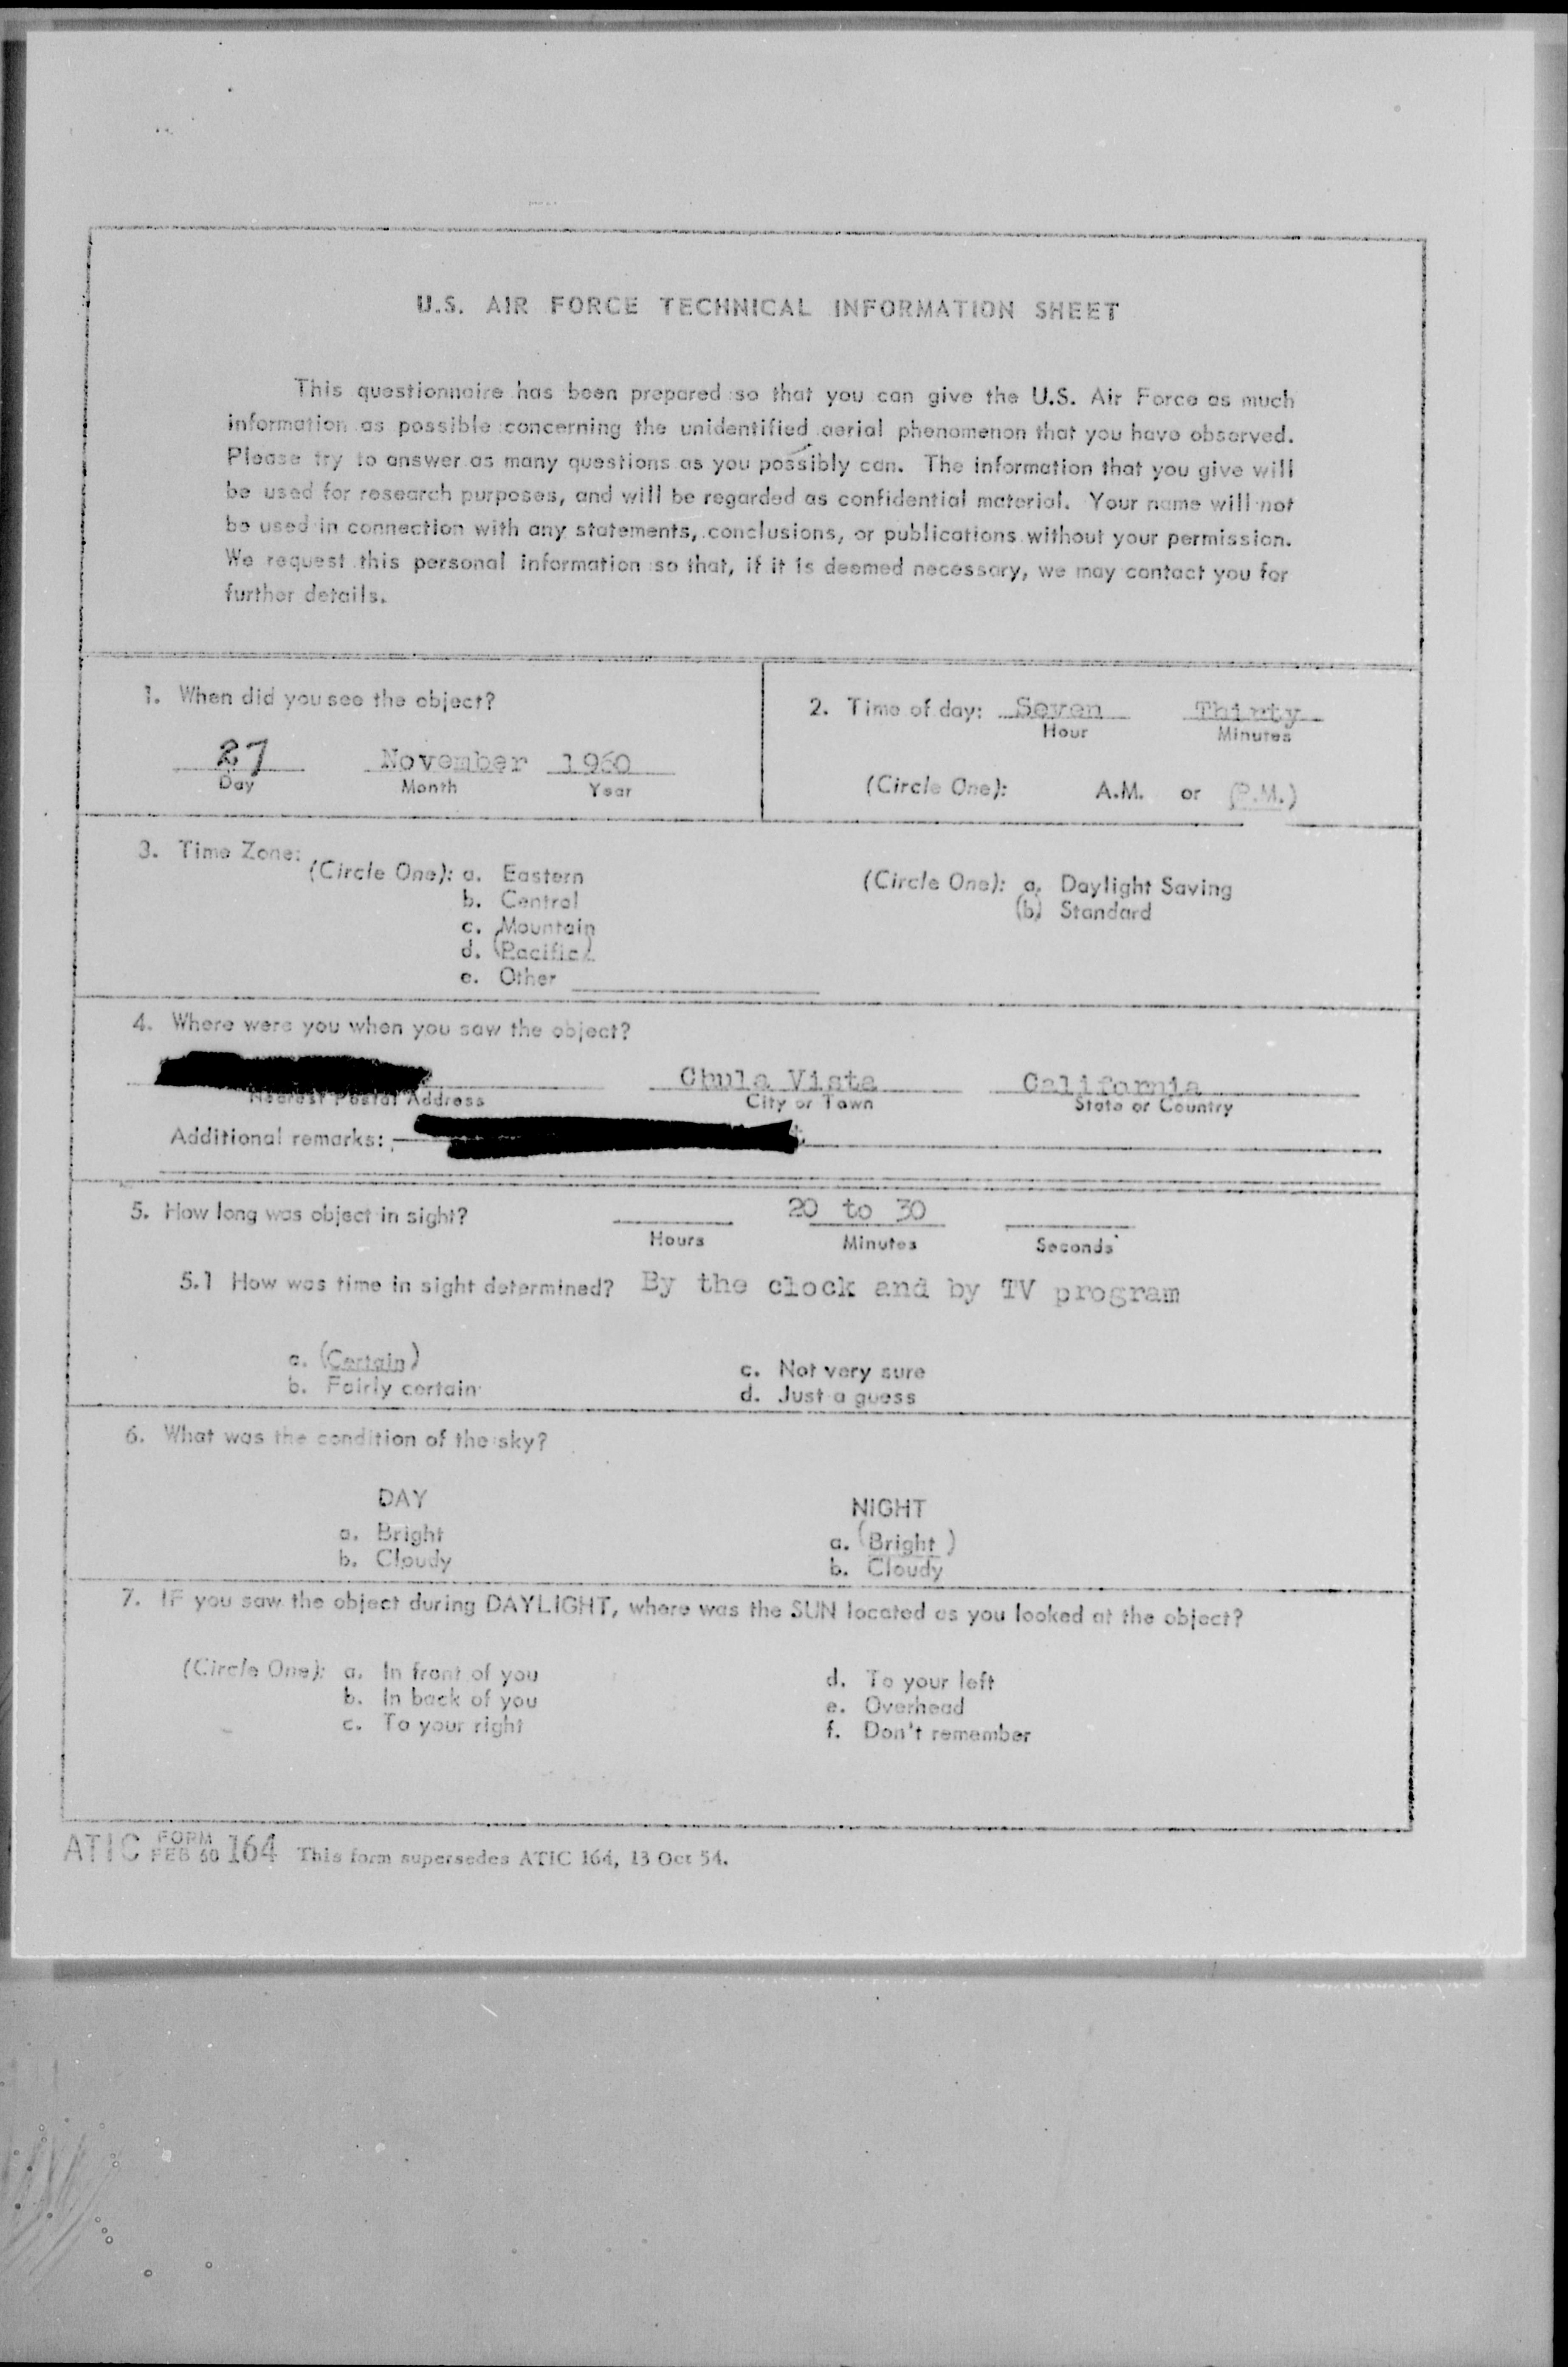 U.S. AIR FORCE TECHNICAL INFORMATION SHEET
This questionnaire has been prepared so that you can give the U.S. Air Force as much
information as possible concerning the unidentified aerial phenomenon that you have observed.
Please try to answer as many questions as you possibly can. The information that you give will
be used for research purposes, and will be regarded as confidential material. Your name will not
be used in connection with any statements, conclusions, or publications without your permission.
We request this personal information so that, if it is deemed necessary, we may contact you for
further details.
1. When did you see the object?
27 November 1960
Day Month Year
2. Time of day: Seven Thirty
Hour Minutes
(Circle One): A.M. or (P.M.)
3. Time Zone:
(Circle One): a. Eastern
b. Central
c. Mountain
d. (Pacific)
e. Other
(Circle One): a. Daylight Saving
(b) Standard
4. Where were you when you saw the object?
Chula Vista California
Nearest Postal Address City or Town State or Country
Additional remarks:
5. How long was object in sight? 20 to 30
Hours Minutes Seconds
5.1 How was time in sight determined? By the clock and by TV program
a. (Certain)
b. Fairly certain
c. Not very sure
d. Just a guess
6. What was the condition of the sky?
DAY
a. Bright
b. Cloudy
NIGHT
a. (Bright)
b. Cloudy
7. IF you saw the object during DAYLIGHT, where was the SUN located as you looked at the object?
(Circle One): a. In front of you
b. In back of you
c. To your right
d. To your left
e. Overhead
f. Don't remember
ATIC FORM FEB 60 164 This form supersedes ATIC 164, 13 Oct 54.